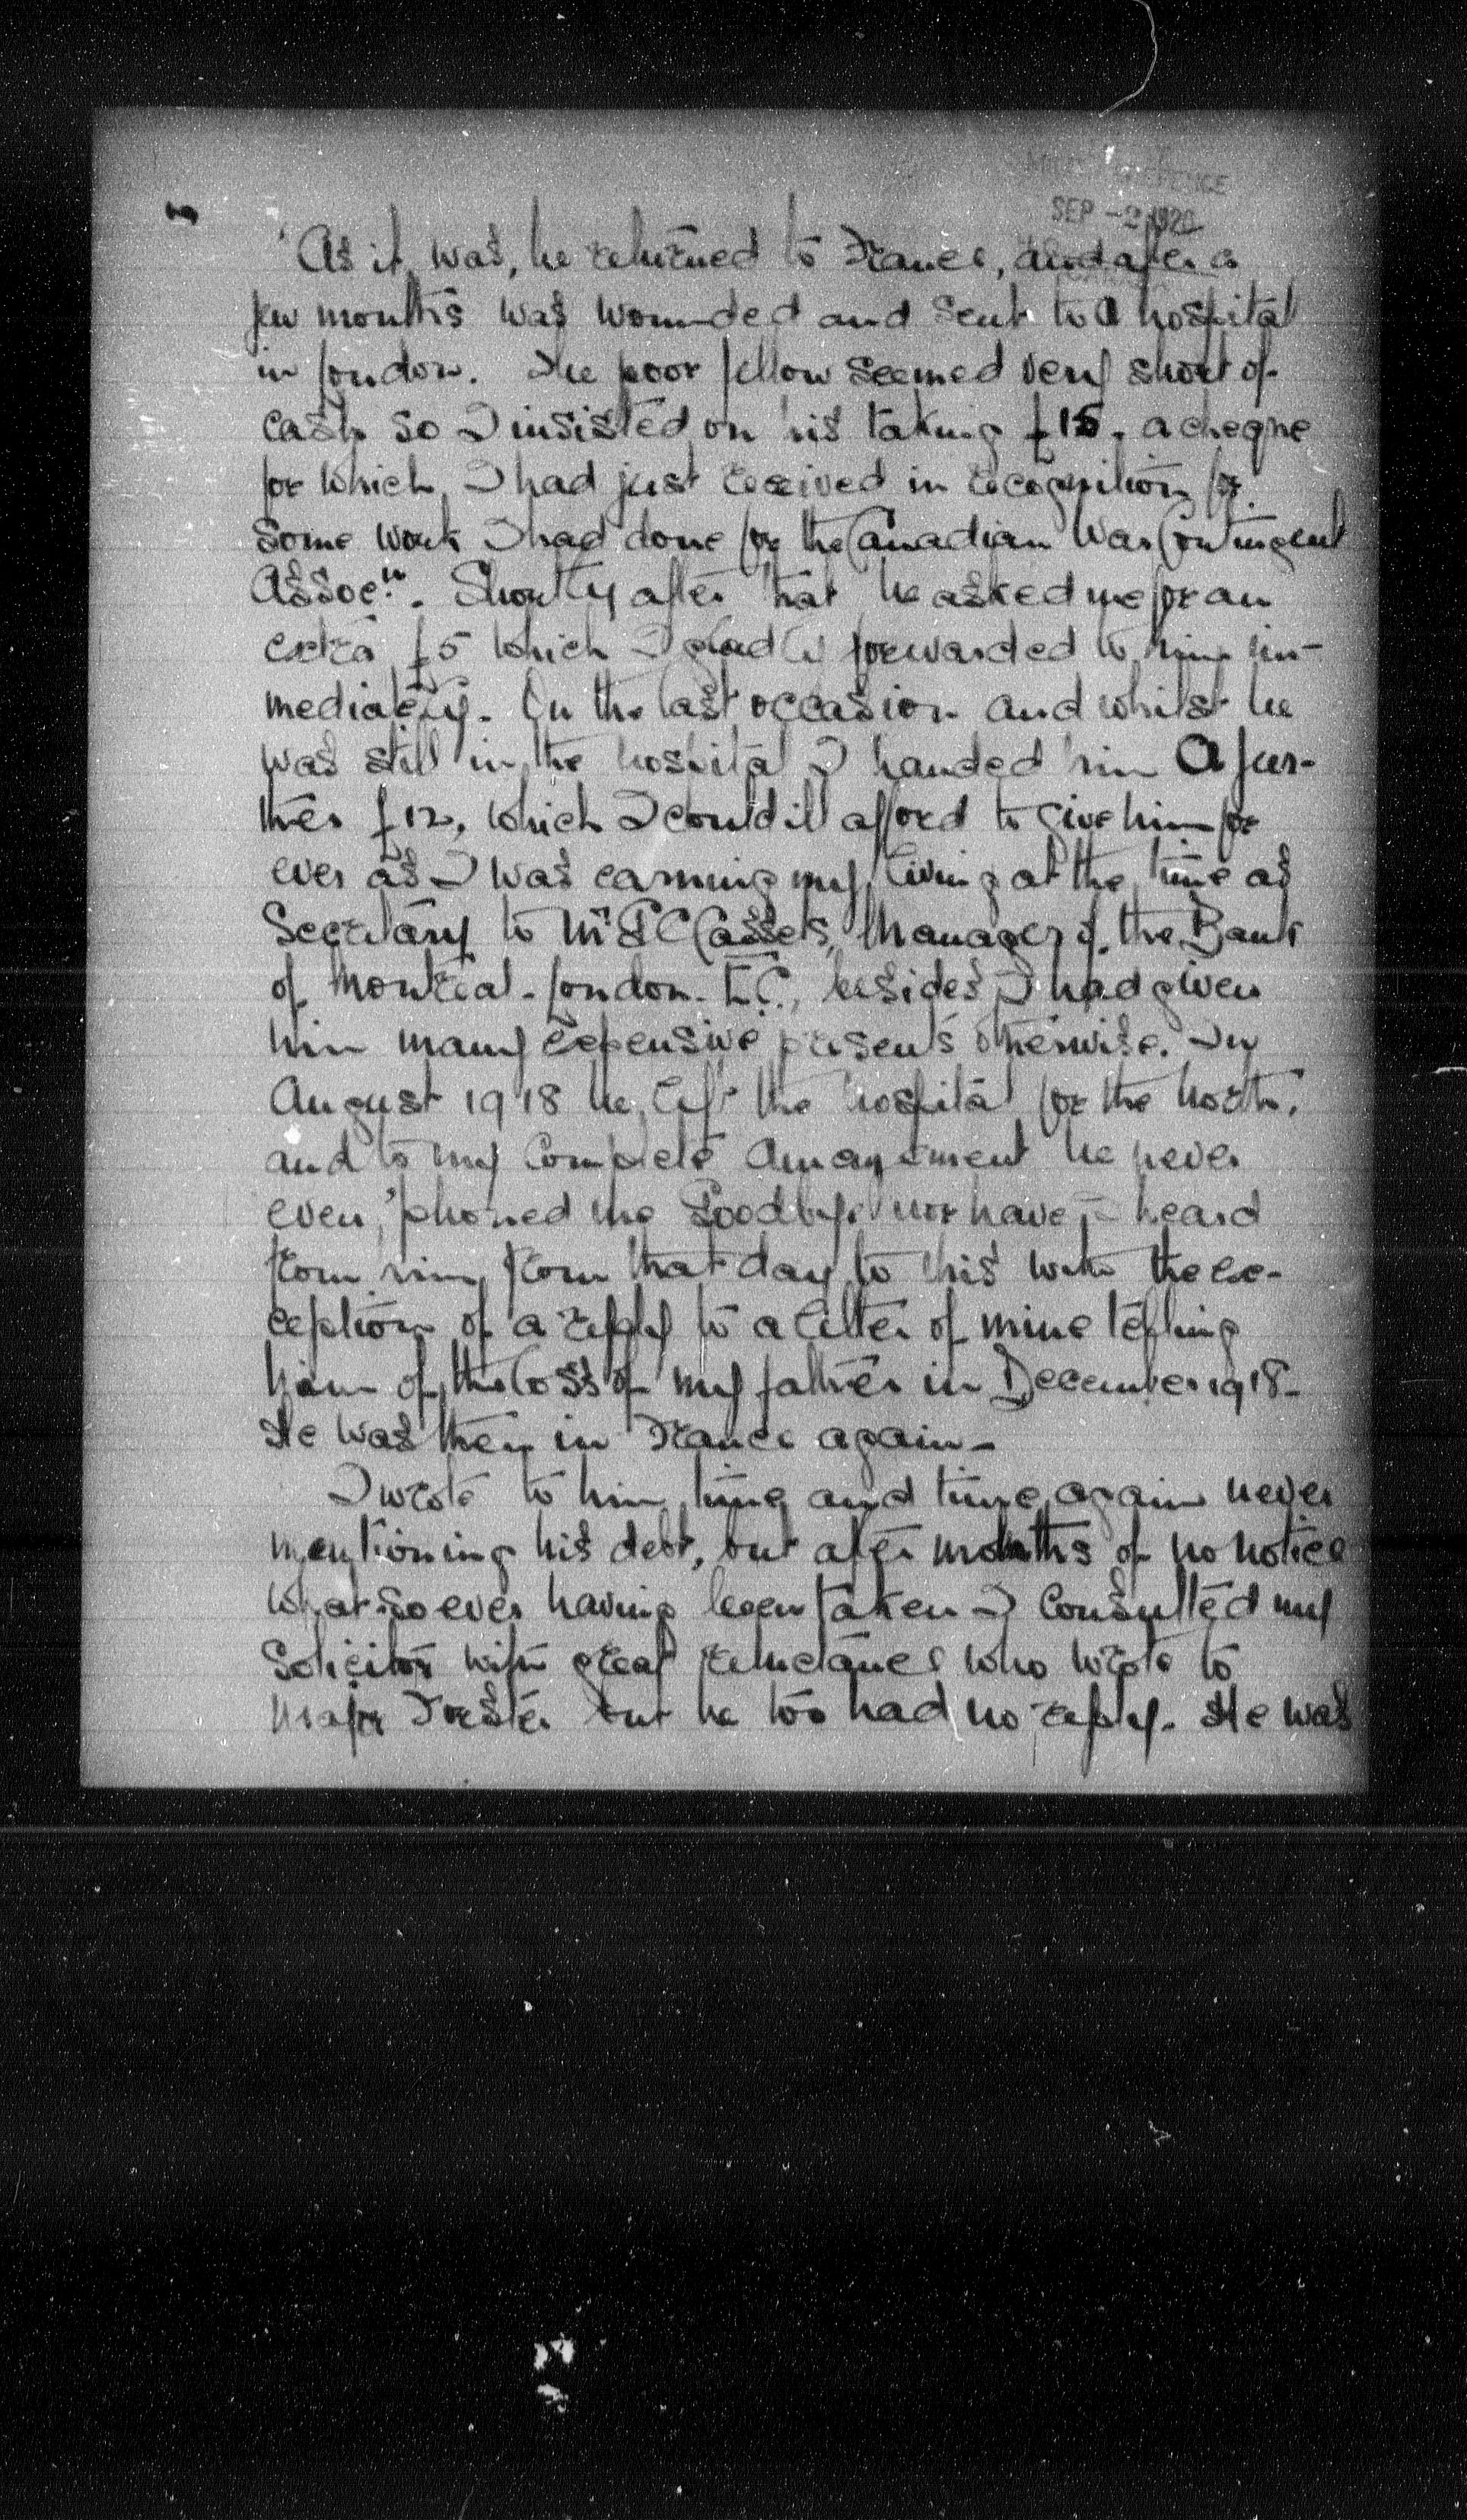 DEFENCE
SEP -2 1920
As it was, he returned to France, and after a
few months was wounded and sent to a hospital
in London. The poor fellow seemed very short of
cash so I insisted on his taking £15, a cheque
for which I had just received in recognition for
some work I had done for the Canadian War Contingent
Assocn. Shortly after that he asked me for an
extra £5 which I gladly forwarded to him im-
mediately. On the last occasion and whilst he
was still in the hospital I handed him a fur-
ther £12, which I could ill afford to give him for
ever as I was earning my living at the time as
Secretary to Mr Cassels, Manager of the Bank
of Montreal - London - E.C., besides I had given
him many expensive presents otherwise. In
August 1918 he left the hospital for the North,
and to my complete amazement he never
even 'phoned me Goodbye nor have I heard
from him from that day to this with the ex-
ception of a reply to a letter of mine telling
him of the loss of my father in December 1918 -
He was then in France again -
I wrote to him time and time again never
mentioning his debt, but after months of no notice
whatsoever having been taken I consulted my
Solicitor with great reluctance who wrote to
Major but he too had no reply. He was